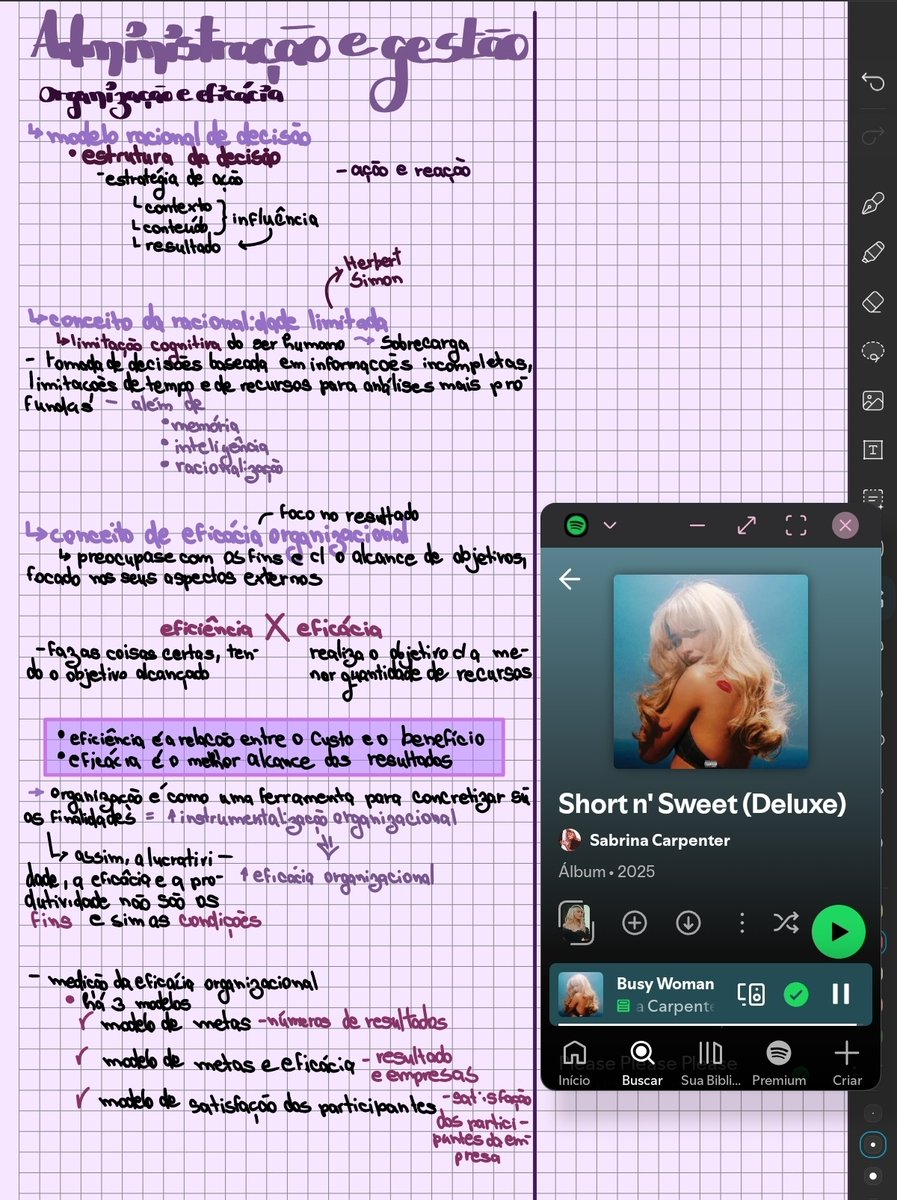 Administração e gestão
organização e eficácia
↳ modelo racional de decisão
• estrutura da decisão
- estratégia de ação
- ação e reação
└ contexto
└ conteúdo } influência
└ resultado
Herbert
Simon
↳ conceito da racionalidade limitada
↳ limitação cognitiva do ser humano → Sobrecarga
- Tomada de decisões baseada em informações incompletas,
limitações de tempo e de recursos para análises mais pro-
fundas - além de
• memória
• inteligência
• racionalização
Foco no resultado
↳ conceito de eficácia organizacional
↳ preocupase com os fins e c/ o alcance de objetivos,
focado nos seus aspectos externos
eficiência X eficácia
- faz as coisas certas, ten-
do o objetivo alcançado
realiza o objetivo c/ a me-
nor quantidade de recursos
• eficiência é a relação entre o custo e o benefício
• eficácia é o melhor alcance dos resultados
→ organização é como uma ferramenta para concretizar su
as finalidades = ↑ instrumentalização organizacional
↳ assim, a lucrativi-
dade, a eficácia e a pro-
dutividade não são os
fins e sim as condições
↑ eficácia organizacional
- medição da eficácia organizacional
• há 3 modelos
✓ modelo de metas - números de resultados
✓ modelo de metas e eficácia - resultado
e empresas
✓ modelo de satisfação dos participantes - satisfação
dos partici-
pantes da em-
presa
Short n' Sweet (Deluxe)
Sabrina Carpenter
Álbum • 2025
Busy Woman
a Carpente
Please Please Please
Início
Buscar
Sua Bibli...
Premium
Criar